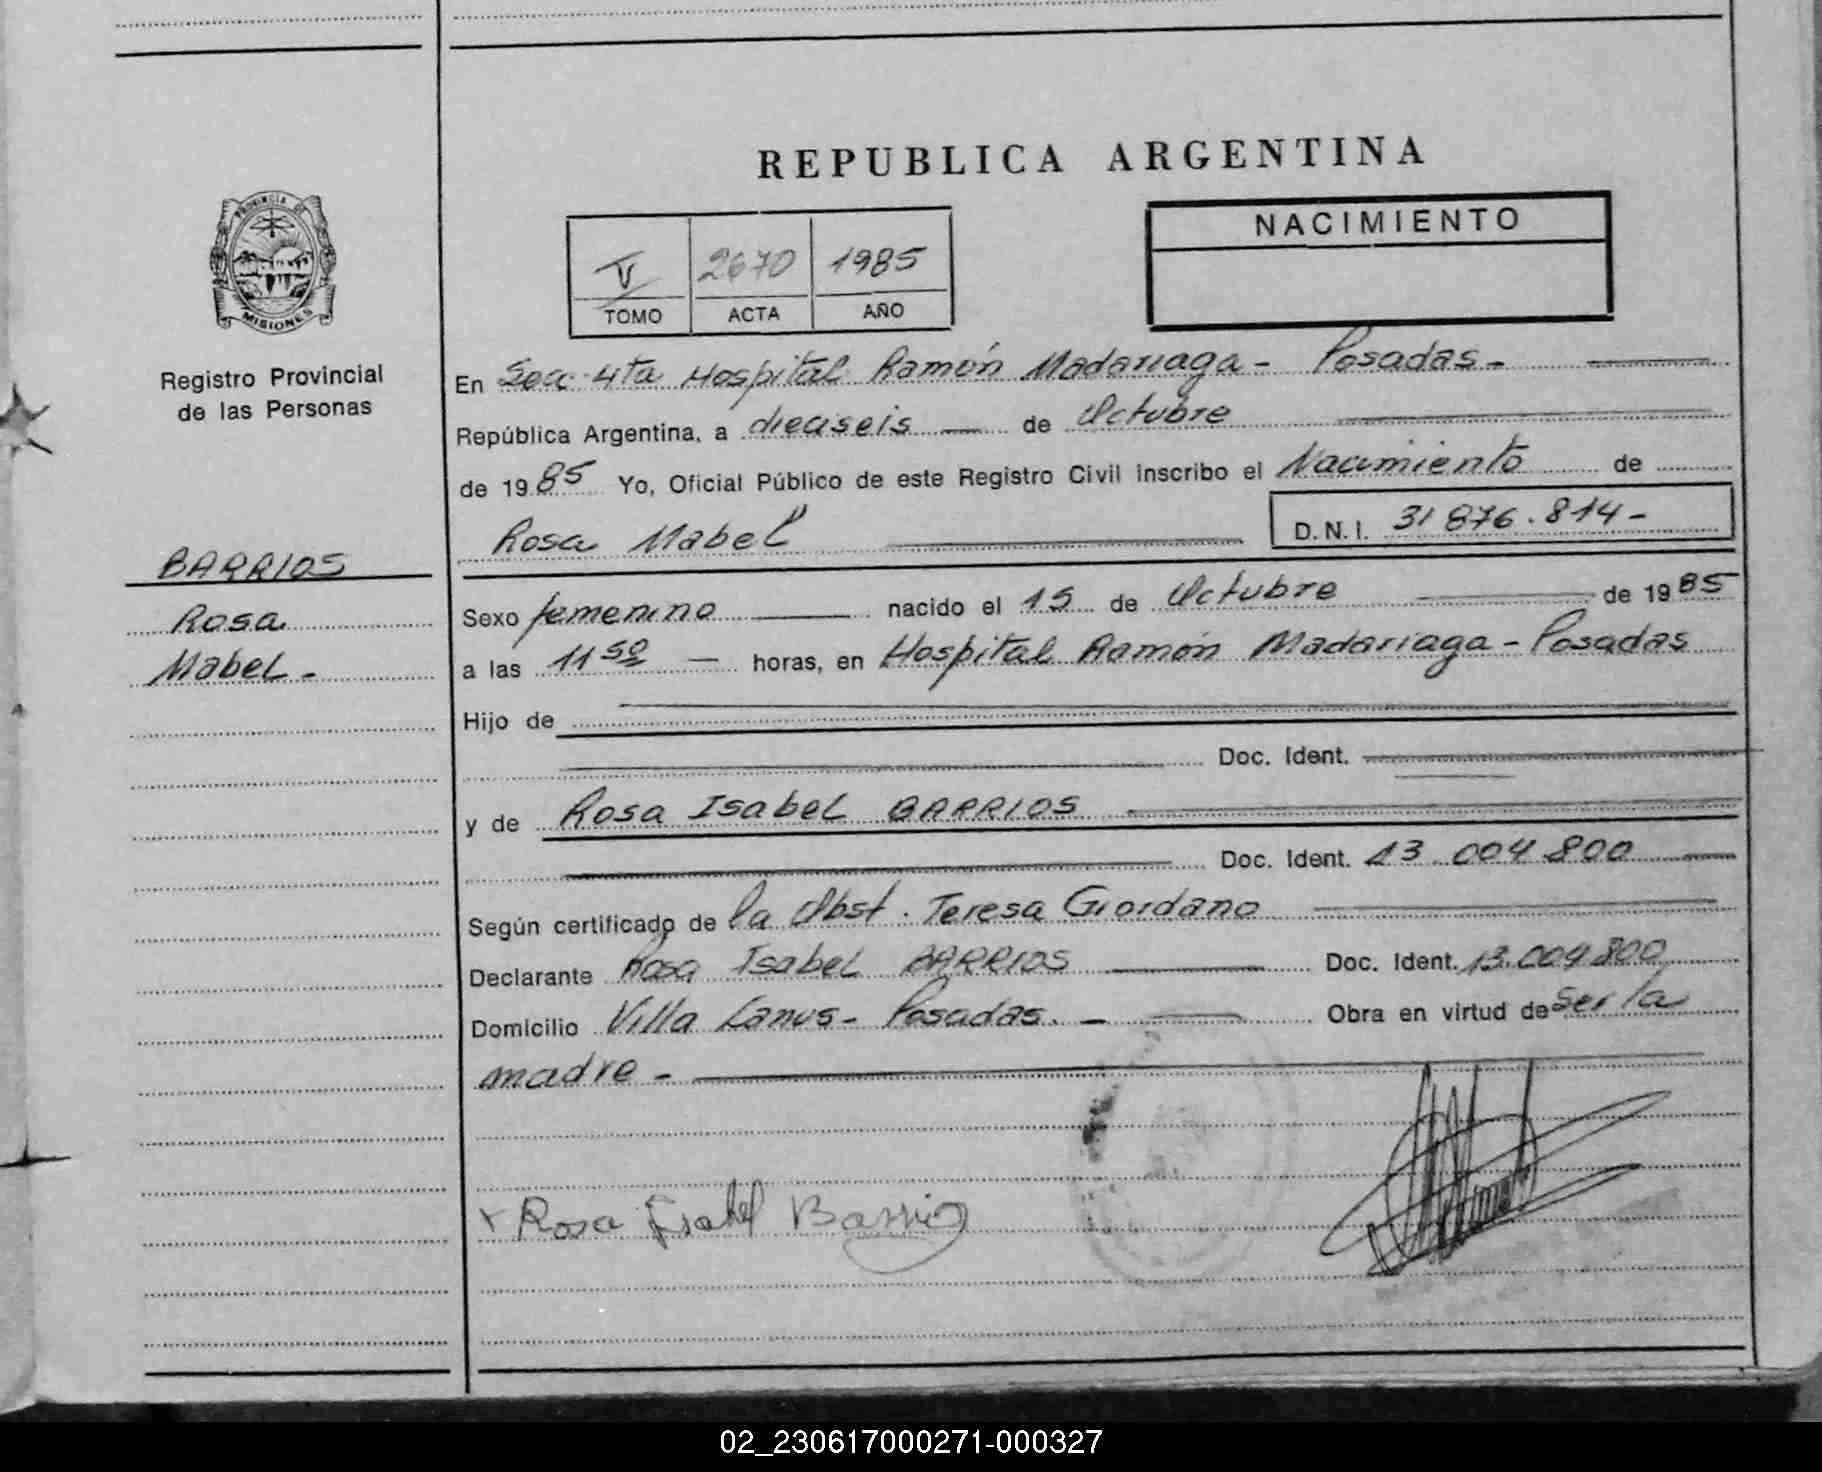 REPUBLICA ARGENTINA
PROVINCIA DE
MISIONES
Registro Provincial
de las Personas
V 2670 1985
TOMO ACTA AÑO
NACIMIENTO
En Secc. 4ta Hospital Ramón Madariaga - Posadas -
República Argentina, a dieciseis de Octubre
de 1985 Yo, Oficial Público de este Registro Civil inscribo el Nacimiento de
Rosa Mabel D.N.I. 31 876.814-
BARRIOS
Rosa
Mabel -
Sexo femenino nacido el 15 de Octubre de 1985
a las 11 50 horas, en Hospital Ramón Madariaga - Posadas
Hijo de
Doc. Ident.
y de Rosa Isabel BARRIOS
Doc. Ident. 13.004.800
Según certificado de la Obst. Teresa Giordano
Declarante Rosa Isabel BARRIOS Doc. Ident. 13.004.800
Domicilio Villa Lanus - Posadas. - Obra en virtud de ser la
madre -
x Rosa Isabel Barrios
02_230617000271-000327